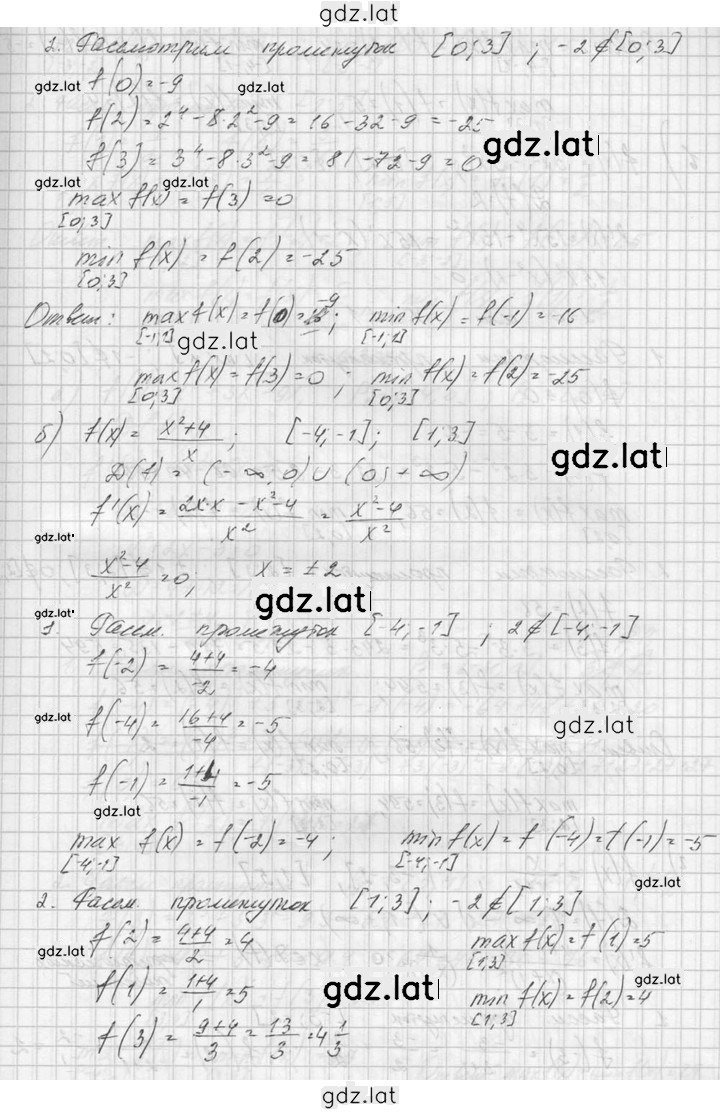 gdz.lat
2. Рассмотрим промежуток [0;3] ; -2∉[0;3]
gdz.lat gdz.lat
f(0)=-9
f(2)=2⁴-8·2²-9=16-32-9=-25
gdz.lat
f(3)=3⁴-8·3²-9=81-72-9=0
gdz.lat gdz.lat
max f(x)=f(3)=0
[0;3]
min f(x)=f(2)=-25
[0;3]
Ответ: max f(x)=f(0)=-9; min f(x)=f(-1)=-16
[-1;1] [-1;1]
gdz.lat
max f(x)=f(3)=0 ; min f(x)=f(2)=-25
[0;3] [0;3]
б) f(x)=(x²+4)/x; [-4;-1]; [1;3]
gdz.lat
D(f)=(-∞;0)∪(0;+∞)
f'(x)=(2x·x-x²-4)/x²=(x²-4)/x²
gdz.lat
(x²-4)/x²=0; x=±2
gdz.lat
gdz.lat
1. Рассм. промежуток [-4;-1] ; 2∉[-4;-1]
f(-2)=(4+4)/-2=-4
gdz.lat gdz.lat
f(-4)=(16+4)/-4=-5
f(-1)=(1+4)/-1=-5
gdz.lat
max f(x)=f(-2)=-4; min f(x)=f(-4)=f(-1)=-5
[-4;-1] [-4;-1]
gdz.lat
2. Рассм. промежуток [1;3] ; -2∉[1;3]
f(2)=(4+4)/2=4 max f(x)=f(1)=5
gdz.lat [1;3]
gdz.lat gdz.lat
f(1)=(1+4)/1=5 min f(x)=f(2)=4
[1;3]
f(3)=(9+4)/3=13/3=4 1/3
gdz.lat